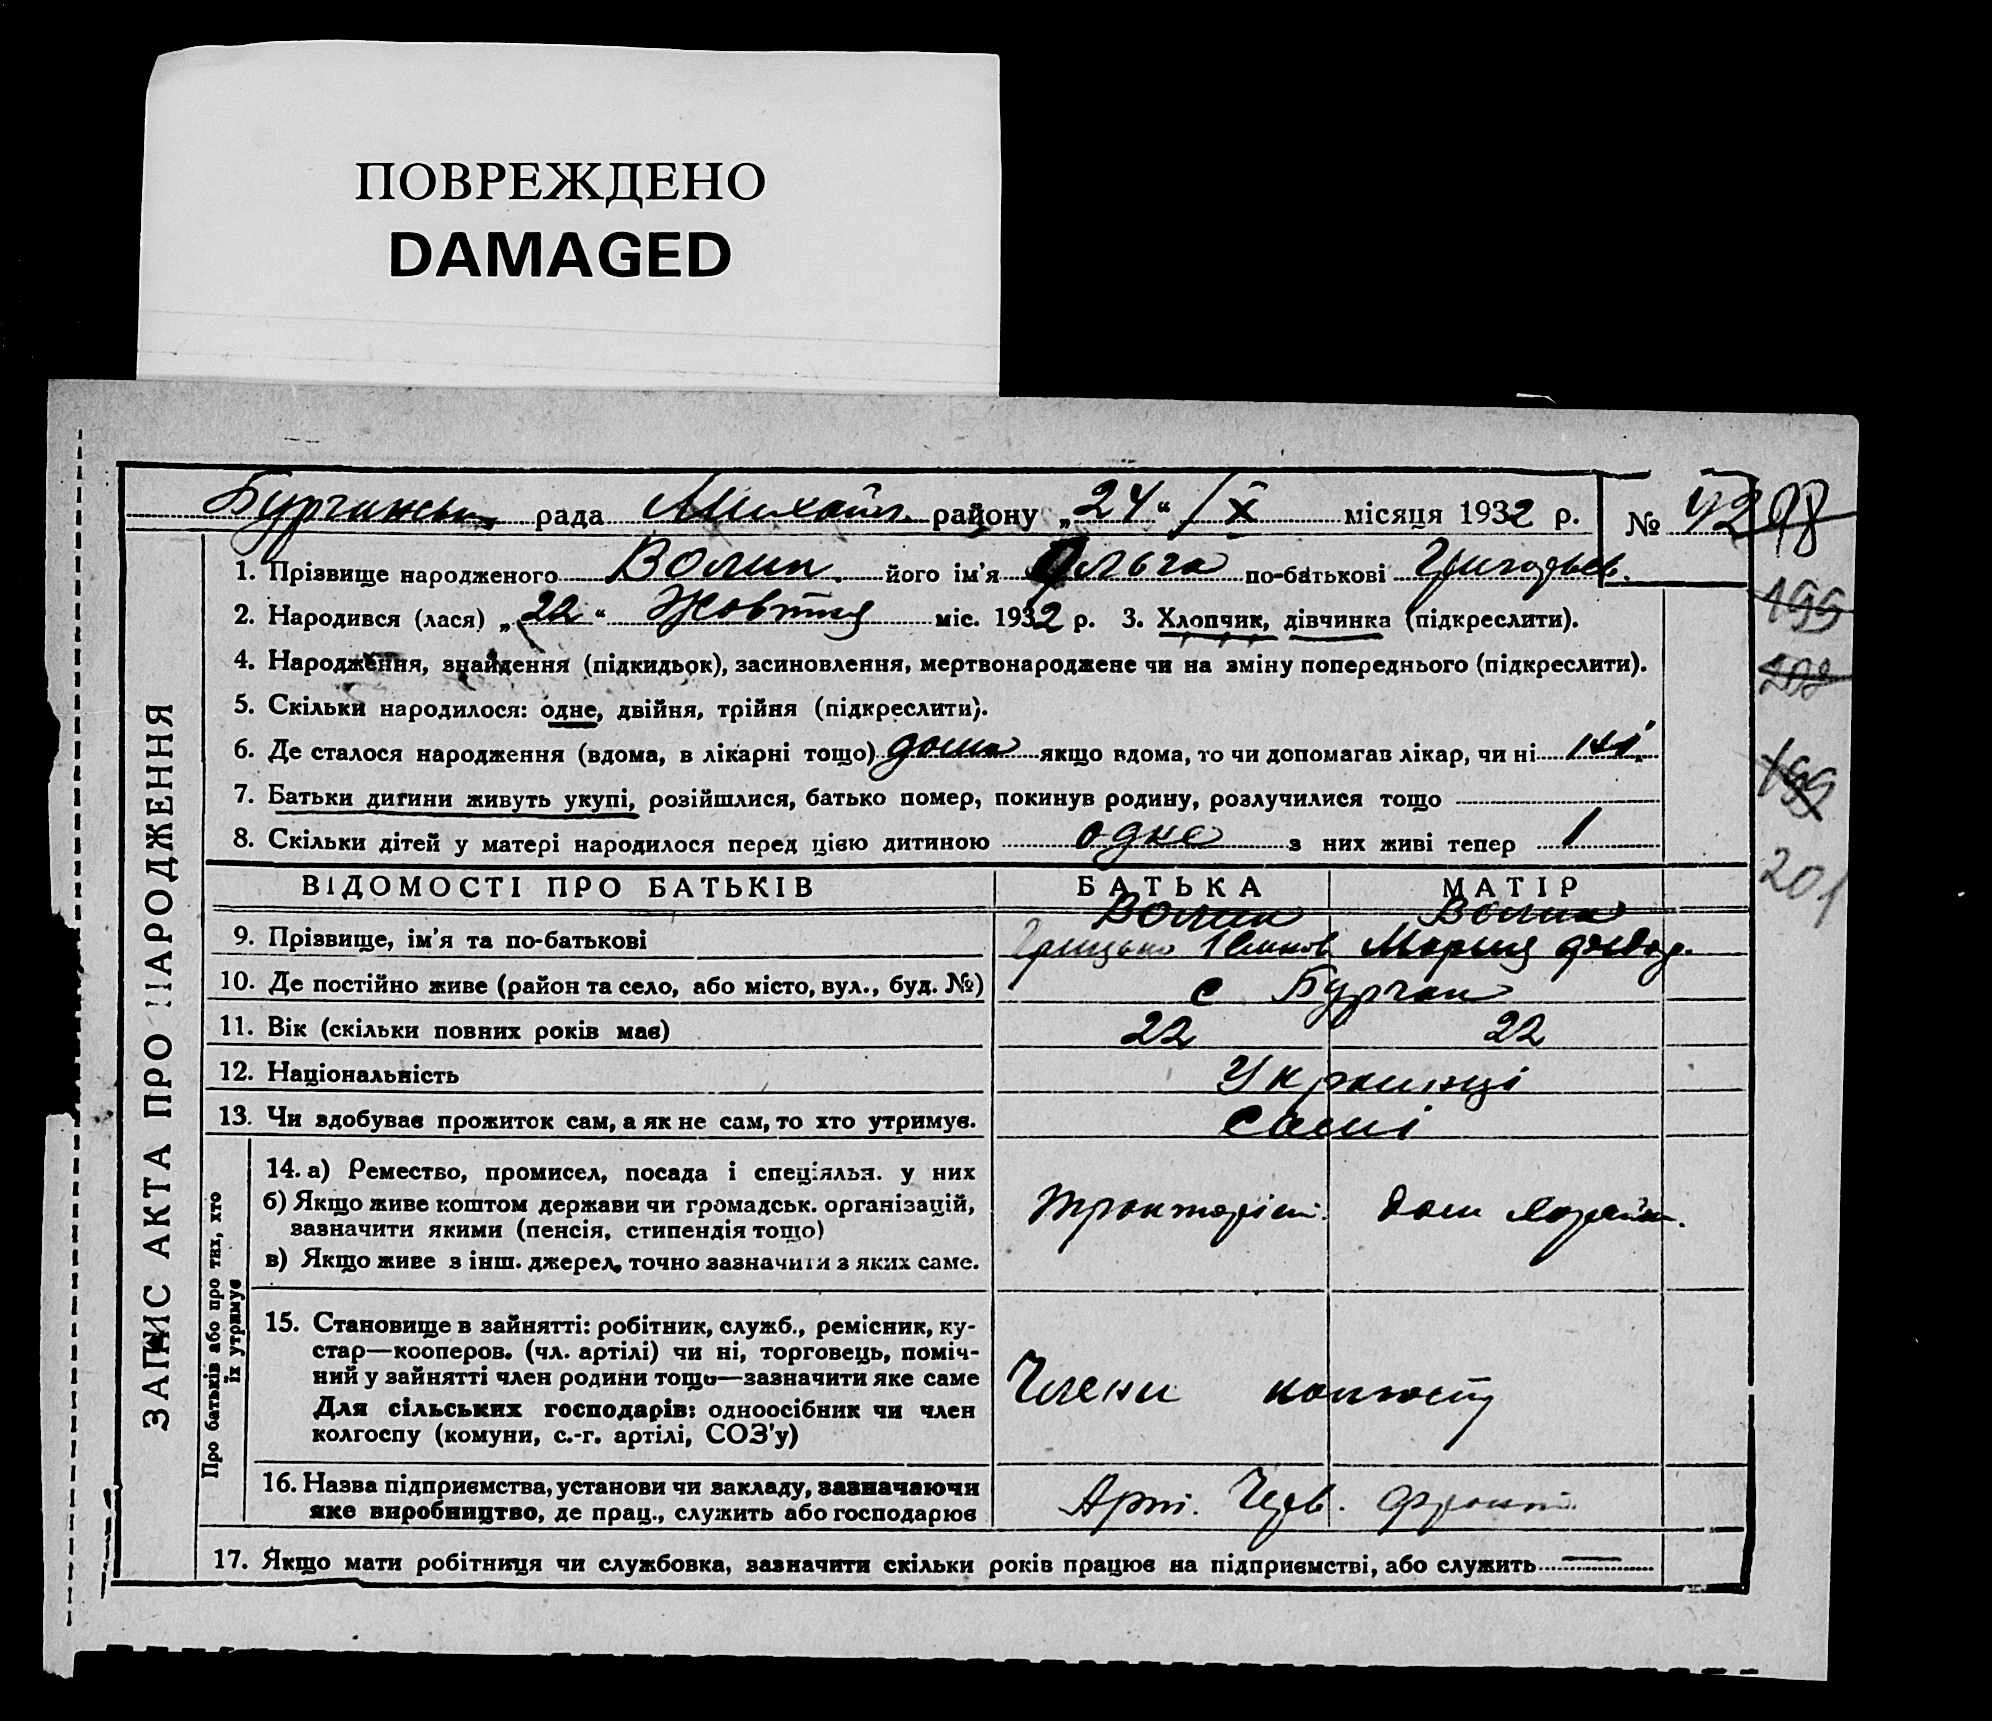 ПОВРЕЖДЕНО
DAMAGED
рада Михайл. району „24“ /X місяця 1932 р. № 92 98
1. Прізвище народженого Волик його ім'я Ольга по-батькові Григорьев.
199
2. Народився (лася) „22“ Жовтня міс. 1932 р. 3. Хлопчик, дівчинка (підкреслити).
4. Народження, знайдення (підкидьок), засиновлення, мертвонароджене чи на зміну попереднього (підкреслити).
202
5. Скільки народилося: одне, двійня, трійня (підкреслити).
6. Де сталося народження (вдома, в лікарні тощо) дома якщо вдома, то чи допомагав лікар, чи ні ні
199
7. Батьки дитини живуть укупі, розійшлися, батько помер, покинув родину, розлучилися тощо
8. Скільки дітей у матері народилося перед цією дитиною одне з них живі тепер 1
201
ВІДОМОСТІ ПРО БАТЬКІВ БАТЬКА МАТІР
Волик Волик
9. Прізвище, ім'я та по-батькові Грицько Мария
10. Де постійно живе (район та село, або місто, вул., буд. №) с Бурчак
11. Вік (скільки повних років має) 22 22
12. Національність Українці
13. Чи здобуває прожиток сам, а як не сам, то хто утримує. Самі
14. а) Ремество, промисел, посада і спеціяльн. у них
б) Якщо живе коштом держави чи громадськ. організацій,
зазначити якими (пенсія, стипендія тощо)
Тракторіст. Дом хозяйк.
в) Якщо живе з інш. джерел, точно зазначити з яких саме.
15. Становище в зайнятті: робітник, служб., ремісник, ку-
стар—кооперов. (чл. артілі) чи ні, торговець, поміч-
ний у зайнятті член родини тощо—зазначити яке саме
Члени колгоспу
Для сільських господарів: одноосібник чи член
колгоспу (комуни, с.-г. артілі, СОЗ'у)
16. Назва підприємства, установи чи закладу, зазначаючи
яке виробництво, де прац., служить або господарює
Арт. Черв. Фронт.
17. Якщо мати робітниця чи службовка, зазначити скільки років працює на підприємстві, або служить —
ЗАПИС АКТА ПРО НАРОДЖЕННЯ
Про батьків або про тих, хто
їх утримує